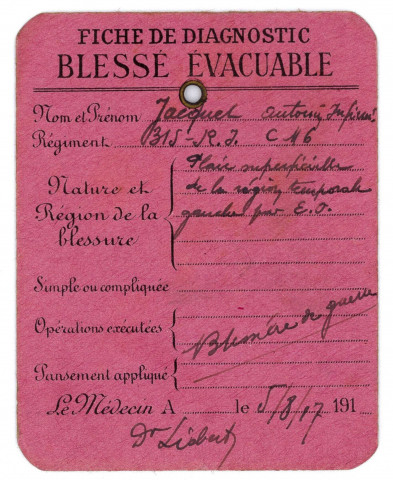 FICHE DE DIAGNOSTIC
BLESSÉ ÉVACUABLE
Nom et Prénom Jacquet
Régiment 315 - R.I. C M6
Nature et Région de la blessure
Plaie superficielle
de la région temporale
gauche par E.O.
Simple ou compliquée
Opérations exécutées
Blessure de guerre
Pansement appliqué
Le Médecin A le 5/8/17 191
Dr Liébert